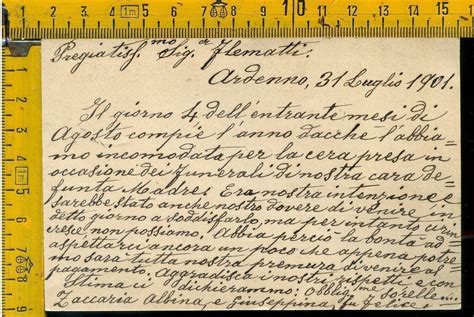 Pregiatiss.mo Sig.or Flematti.
Ardenno, 31 Luglio 1901.
Il giorno 4 dell'entrante mesi di
Agosto compie l'anno dacchè l'abbia=
mo incomodata per la cera presa in
occasione dei funerali di nostra cara de=
funta Madre. Era nostra intenzione e
sarebbe stato anche nostro dovere di venire in
detto giorno a soddisfarlo, ma per intanto ci rin=
cresce non possiamo. Abbia perciò la bontà ad
aspettarci ancora un poco che appena potre=
mo sarà tutta nostra premura di venire al
pagamento. Aggradisca i nostri rispetti e con
Stima ci dichieriamo: Obblig.me sorelle
Zaccaria Albina, e Giuseppina, fu Felice.